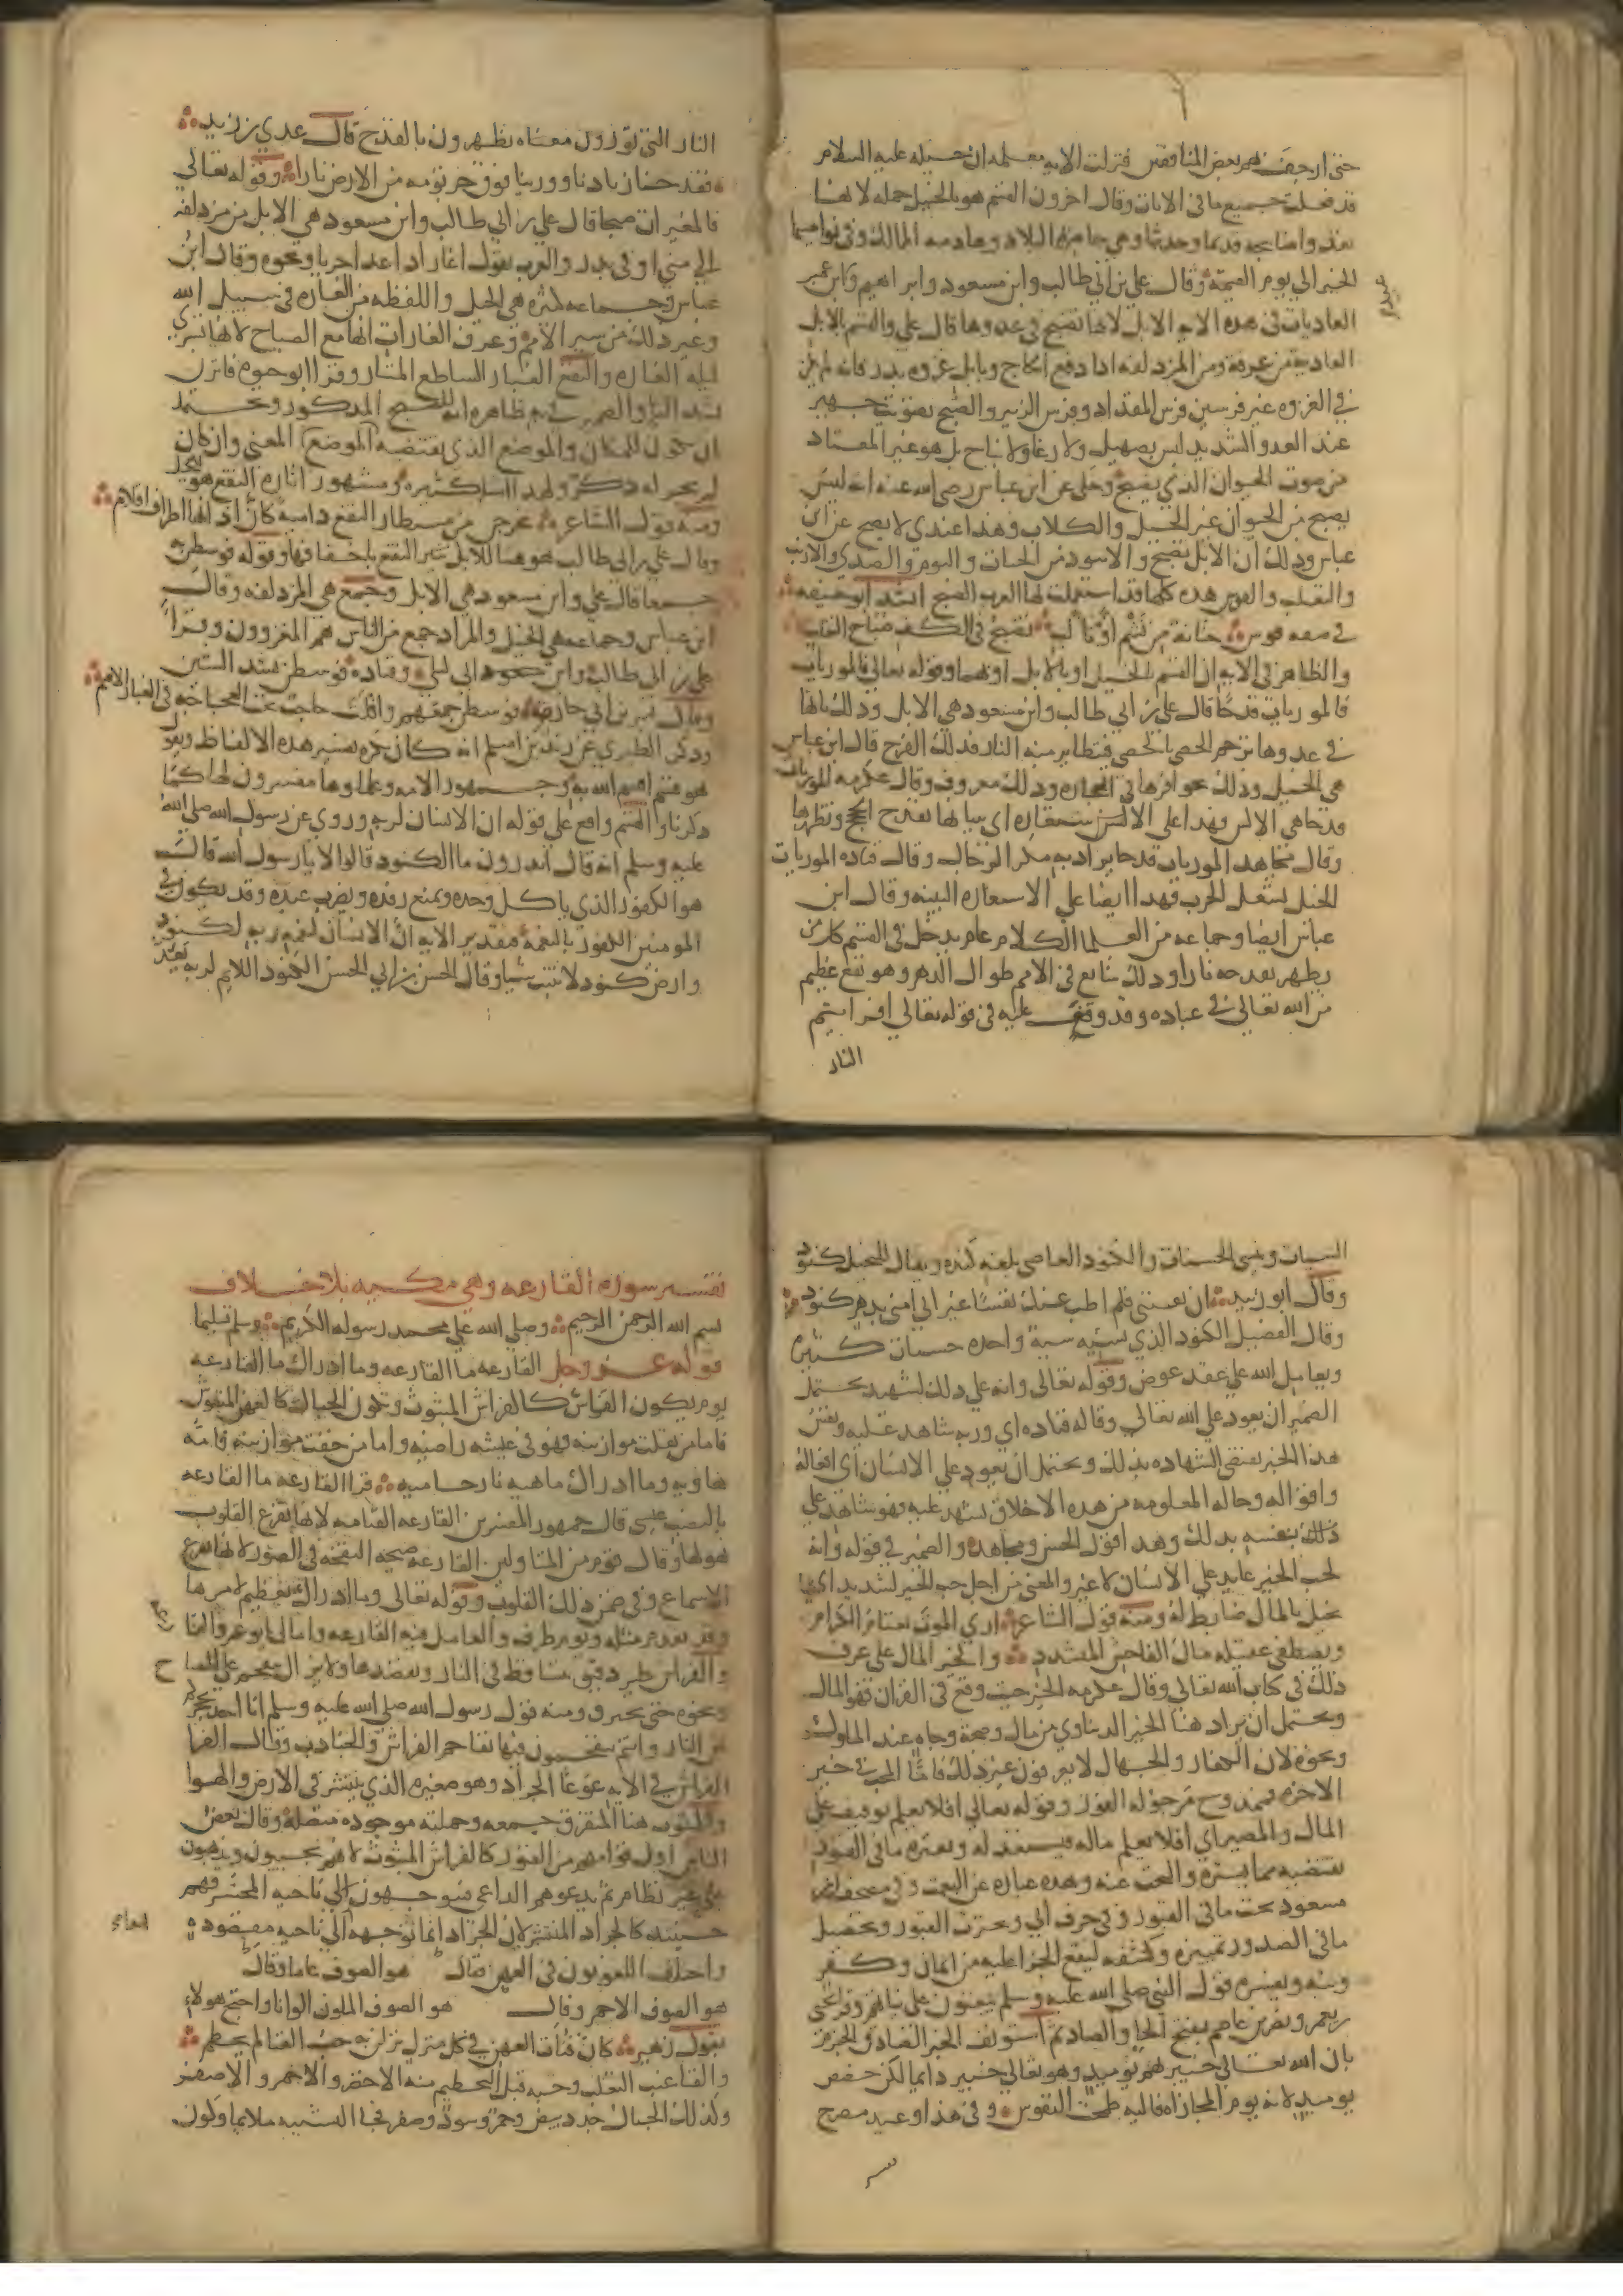 حتى ارجف بهم بعض المنافقين فنزلت الايه معلمه ان خيله عليه السلام
قد فعلت جميع ما في الايات وقال اخرون القسم هو بالخيل جمله لانها
تعدو ضابحه قديما وحديثا وهي حاصره البلاد وهادمه الممالك وفي نواصيها
الخير الى يوم القيمة وقال علي بن ابي طالب وابن مسعود وابراهيم وابن عمير
العاديات في هذه الايه الابل لانها تضبح في عدوها قال علي والقسم بالابل
العاديه من عرفة ومن المزدلفه اذا دفع الحاج وبابل غزوه بدر فانه لم يكن
في الغزوه غير فرسين فرس المقداد وفرس الزبير والضبح تصويت جهير
عند العدو الشديد ليس بصهيل ولا رغا ولا نباح بل هو غير المعتاد
من صوت الحيوان الذي يضبح وحكى عن ابن عباس رضي الله عنه انه ليس
يضبح من الحيوان غير الخيل والكلاب وهذا عندي لا يصح عن ابن
عباس وذلك ان الابل تضبح والاسود من الحيات والبوم والصدى والارنب
والثعلب والقوس هذه كلها قد استعملت لها العرب الضبح انشد ابو حنيفه
في صفه قوس حنانة من نشم او تألب تضبح في الكف ضباح الثعلب
والظاهر في الايه ان القسم بالخيل او بالابل او بهما وقوله تعالى فالموريات
فالموريات قدحا قال علي بن ابي طالب وابن مسعود هي الابل وذلك بانها
في عدوها ترجم الحصى بالحصى فيتطاير منه النار فذلك القدح قال ابن عباس
هي الخيل وذلك بحوافرها في الحجاره وذلك معروف وقال عكرمه الموريات
قدحا هي الالسن فهذا على الاستعاره اي ببيانها تقدح الحجج وتظهرها
وقال مجاهد الموريات قدحا يراد به مكر الرجال وقال قتاده الموريات
الخيل تشعل الحرب فهذا ايضا على الاستعاره البينه وقال ابن
عباس ايضا وجماعه من العلما الكلام عام يدخل في القسم كل من
يظهر بقدحه نارا وذلك شايع في الامم طوال الدهر وهو نفع عظيم
من الله تعالى في عباده وقد وقف عليه في قوله تعالى افرايتم
النار
النار التي تورون معناه تظهرون بالقدح قال عدي بن زيد
فقدحنا زنادنا وورينا فوق جرثومه من الارض نارا وقوله تعالى
فالمغيرات صبحا قال علي بن ابي طالب وابن مسعود هي الابل من مزدلفه
الى منى او في بدر والعرب تقول اغار اذا عدا جريا ونحوه وقال ابن
عباس وجماعه كثيره هي الخيل واللفظه من الغاره في سبيل الله
وغير ذلك من سير الامم وعرف الغارات انها مع الصباح لانها تسري
ليله الغاره والنقع الغبار الساطع المثار وقرا ابو حيوه فاثرن
بشد الثا والضمير في به ظاهره انه للصبح المذكور ويحتمل
ان يكون للمكان والموضع الذي يقتضيه المعنى وان كان
لم يجر له ذكر ولهذا امثله كثيره ومشهور اثاره النقع هو للخيل
ومنه قول الشاعر يخرجن من مستطار النقع داميه كان اذانها اطراف اقلام
وقال علي بن ابي طالب هو هنا للابل تثير النقع باخفافها وقوله فوسطن به
جمعا قال علي وابن مسعود هي الابل وجمع هي المزدلفه وقال
ابن عباس وجماعه هي الخيل والمراد جمع من الناس هم المغزوون وقرا
علي بن ابي طالب وابن ابي ليلى وقتاده فوسطن بشد السين
وقال بشر بن ابي حازم فوسطن جمعهم وافلت حاجب تحت العجاجه في الغبار الاقتم
وذكر الطبري عن زيد بن اسلم انه كان يكره تفسير هذه الالفاظ ويقول
هو قسم اقسم الله به وجمهور الامه وعلماوها مفسرون لها كما
ذكرنا والقسم واقع على قوله ان الانسان لربه وروي عن رسول الله صلى الله
عليه وسلم انه قال اتدرون ما الكنود قالوا لا يا رسول الله قال
هو الكفور الذي ياكل وحده ويمنع رفده ويضرب عبده وقد يكون في
المومنين الكفور بالنعمة فتقدير الايه ان الانسان لنعمه ربه لكنود
وارض كنود لا تنبت شيا وقال الحسن بن ابي الحسن الكنود اللايم لربه يعد
السيات وينسى الحسنات والكنود العاصي بلغه كنده ويقال للبخيل كنود
وقال ابو زبيد ان تفتني فلم اطب عنك نفسا غير اني امنى بدهر كنود
وقال الفضيل الكنود الذي تنسيه سية واحده حسنات كثيره
ويعامل الله على عقد عوض وقوله تعالى وانه على ذلك لشهيد يحتمل
الضمير ان يعود على الله تعالى وقاله قتاده اي وربه شاهد عليه وتفسير
هذا الخبر يقتضي الشهاده بذلك ويحتمل ان يعود على الانسان اي افعاله
واقواله وحاله المعلومه من هذه الاخلاق تشهد عليه فهو شاهد على
ذلك بنفسه بذلك وهذا قول الحسن ومجاهد والضمير في قوله وانه
لحب الخير عايد على الانسان لا غير والمعنى من اجل حب الخير لشديد اي
بخيل بالمال ضابط له ومنه قول الشاعر ارى الموت يعتام الكرام
ويصطفي عقيله مال الفاحش المتشدد والخير المال على عرف
ذلك في كتاب الله تعالى وقال عكرمه الخير حيث وقع في القران فهو المال
ويحتمل ان يراد هنا الخير الدنياوي من مال وصحة وجاه عند الملوك
ونحوه لان الكفار والجهال لا يعرفون غير ذلك فاما المحب في خير
الاخره فممدوح مرجو له الفوز وقوله تعالى افلا يعلم توقيف على
المال والمصير اي افلا يعلم ماله فيستعد له وبعثره ما في القبور
نقضه مما يستره والبحث عنه وهذه عباره عن البعث وفي مصحف ابن
مسعود بحث ما في القبور وفي حرف ابي وبحثرت القبور وتحصيل
ما في الصدور تمييزه وكشفه ليقع الجزا عليه من ايمان وكفر
ونيه ويفسره قول النبي صلى الله عليه وسلم يبعثون على نياتهم وقرا يحيى بن
يعمر ونصر بن عاصم بفتح الحا والصاد ثم استونف الخبر الصادق الجزم
بان الله تعالى خبير بهم يوميذ وهو تعالى خبير دايما لكن خصص
يوميذ لانه يوم المجازاه فاليه طمحت النفوس وفي هذا وعيد مصرح
تفسير سوره القارعه وهي مكيه بلا خلاف
بسم الله الرحمن الرحيم وصلى الله على محمد رسوله الكريم وسلم تسليما
قوله عز وجل القارعه ما القارعه وما ادراك ما القارعه
يوم يكون الناس كالفراش المبثوث وتكون الجبال كالعهن المنفوش
فاما من ثقلت موازينه فهو في عيشه راضيه واما من خفت موازينه فامه
هاويه وما ادراك ماهيه نار حاميه قرا القارعه ما القارعه
بالنصب عيسى قال جمهور المفسرين القارعه القيامه لانها تقرع القلوب
بهولها وقال قوم من المتاولين القارعه صيحه النفخه في الصور لانها تقرع
الاسماع وفي ضمن ذلك القلوب وقوله تعالى وما ادراك تعظيم لامرها
وقد تقدم مثله ويوم ظرف والعامل فيه القارعه وامال ابو عمرو القا
والفراش طير دقيق يتساقط في النار ويقصدها ولا يزال يتقحم على المصباح
ونحوه حتى يحترق ومنه قول رسول الله صلى الله عليه وسلم انا اخذ بحجزكم
عن النار وانتم تقتحمون فيها تقاحم الفراش والجنادب وقال الفرا
الفراش في الايه غوغا الجراد وهو صغيره الذي ينتشر في الارض والهوا
والمبثوث هنا المتفرق جمعه وجملته موجوده متصله وقال بعض
الناس اول قيامهم من القبور كالفراش المبثوث لانهم يجيبون ويذهبون
على غير نظام ثم يدعوهم الداعي فيتوجهون الى ناحيه المحشر فهم
حينيذ كالجراد المنتشر لان الجراد انما توجهه الى ناحيه مقصوده
واختلف اللغويون في العهن فقال هو الصوف عاما وقال
هو الصوف الاحمر وقال هو الصوف الملون الوانا واحتج هولاء
بقول زهير كان فتات العهن في كل منزل نزلن به حب الفنا لم يحطم
والفنا عنب الثعلب وحبه قبل التحطيم منه الاخضر والاحمر والاصفر
وكذلك الجبال جدد بيض وحمر وسود وصفر فجا التشبيه ملايما وكون